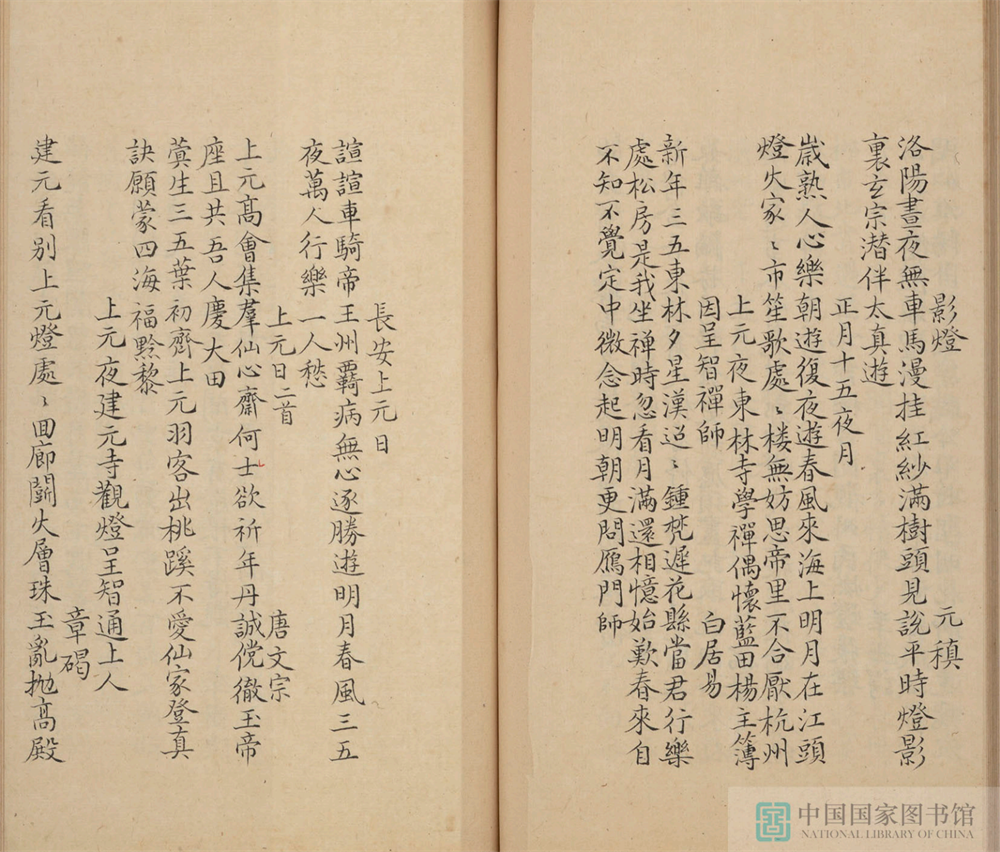 影燈　元稹
洛陽晝夜無車馬漫挂紅紗滿樹頭見說平時燈影
裏玄宗潛伴太真遊
正月十五夜月
歲熟人心樂朝遊復夜遊春風來海上明月在江頭
燈火家〻市笙歌處〻樓無妨思帝里不合厭杭州
上元夜東林寺學禪偶懷藍田楊主簿
因呈智禪師　白居易
新年三五東林夕星漢迢〻鍾梵遲花縣當君行樂
處松房是我坐禪時忽看月滿還相憶始歎春來自
不知不覺定中微念起明朝更問鴈門師
長安上元日
諠諠車騎帝王州羇病無心逐勝遊明月春風三五
夜萬人行樂一人愁
上元日二首　唐文宗
上元高會集羣仙心齋何士欲祈年丹誠儻徹玉帝
座且共吾人慶大田
蓂生三五葉初齊上元羽客出桃蹊不愛仙家登真
訣願蒙四海福黔黎
上元夜建元寺觀燈呈智通上人
章碣
建元看别上元燈處〻回廊鬬火層珠玉亂拋高殿
中国国家图书馆
NATIONAL LIBRARY OF CHINA